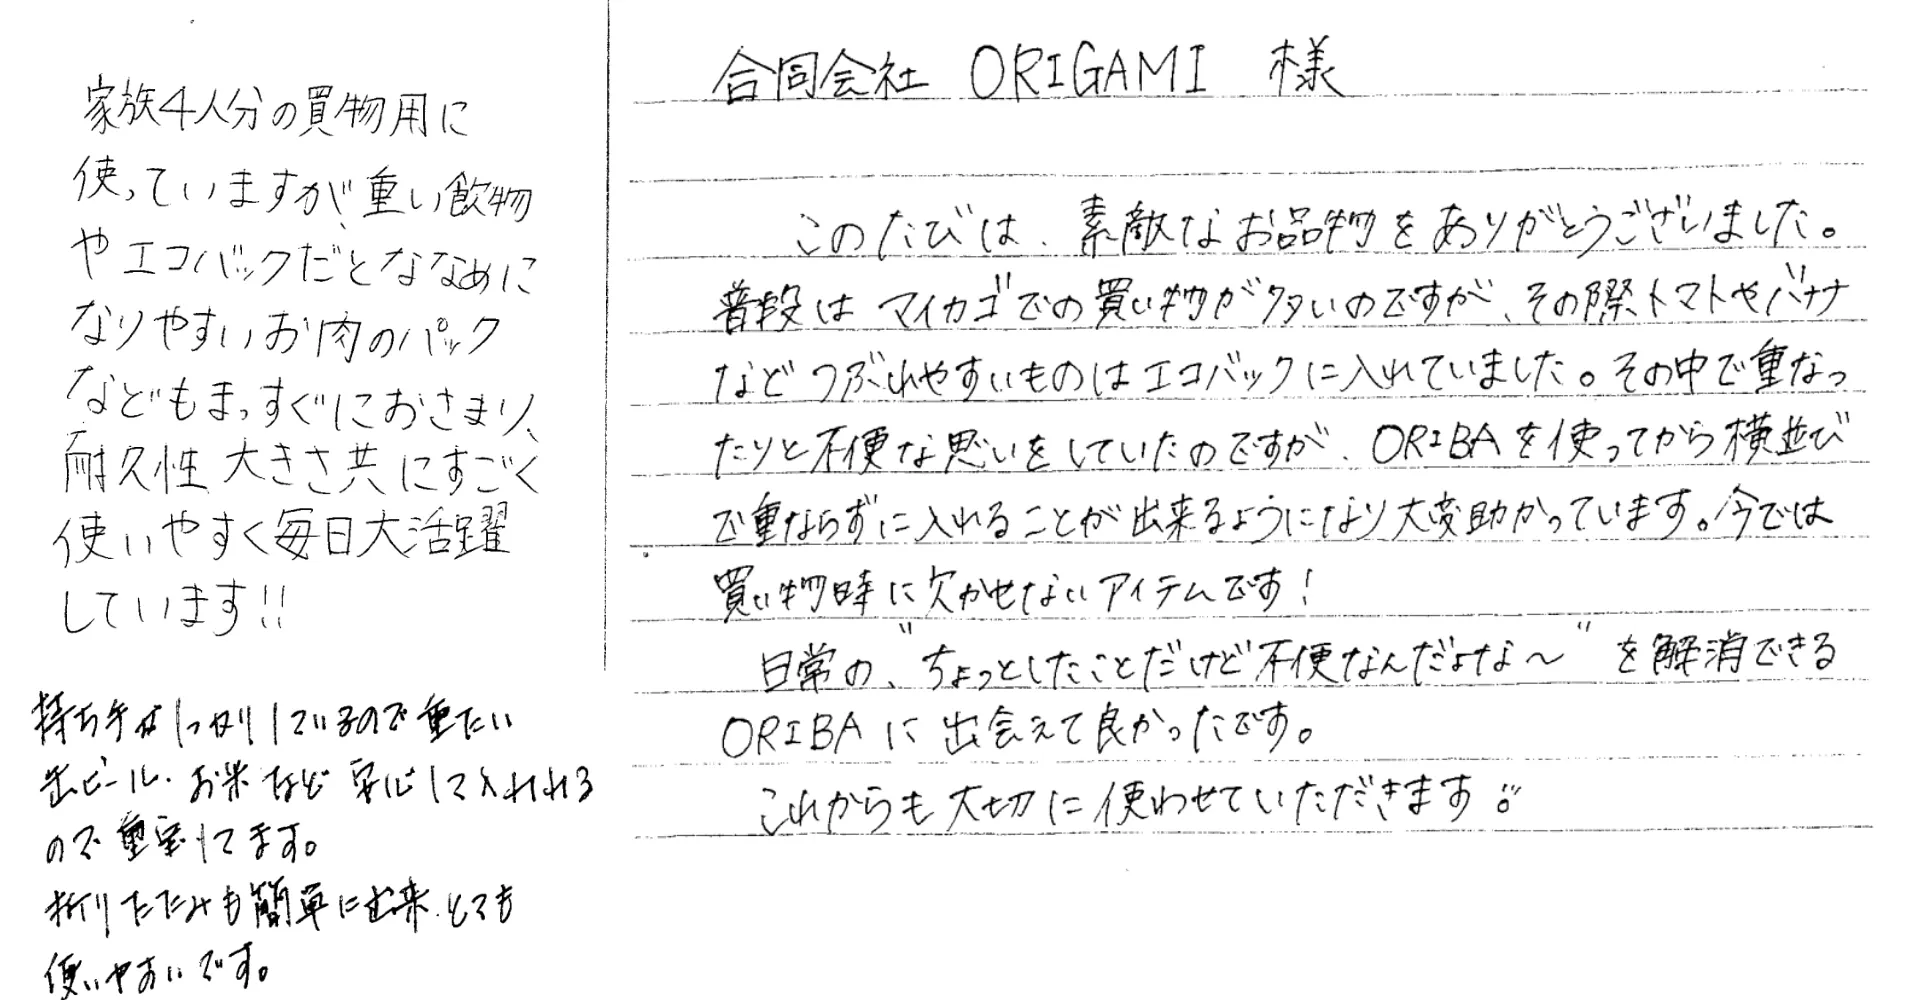 家族4人分の買物用に
使っていますが、重い飲物
やエコバックだとななめに
なりやすいお肉のパック
などもまっすぐにおさまり、
耐久性、大きさ共にすごく
使いやすく毎日大活躍
しています!!
持ち手がしっかりしているので重たい
缶ビール、お米など安心して入れれる
ので重宝してます。
折りたたみも簡単に出来、とても
使いやすいです。
合同会社 ORIGAMI 様
このたびは、素敵なお品物をありがとうございました。
普段はマイカゴでの買い物が多いのですが、その際トマトやバナナ
などつぶれやすいものはエコバックに入れていました。その中で重なっ
たりと不便な思いをしていたのですが、ORIBAを使ってから横並び
で重ならずに入れることが出来るようになり大変助かっています。今では
買い物時に欠かせないアイテムです!
日常の、"ちょっとしたことだけど不便なんだよな〜"を解消できる
ORIBAに出会えて良かったです。
これからも大切に使わせていただきます。